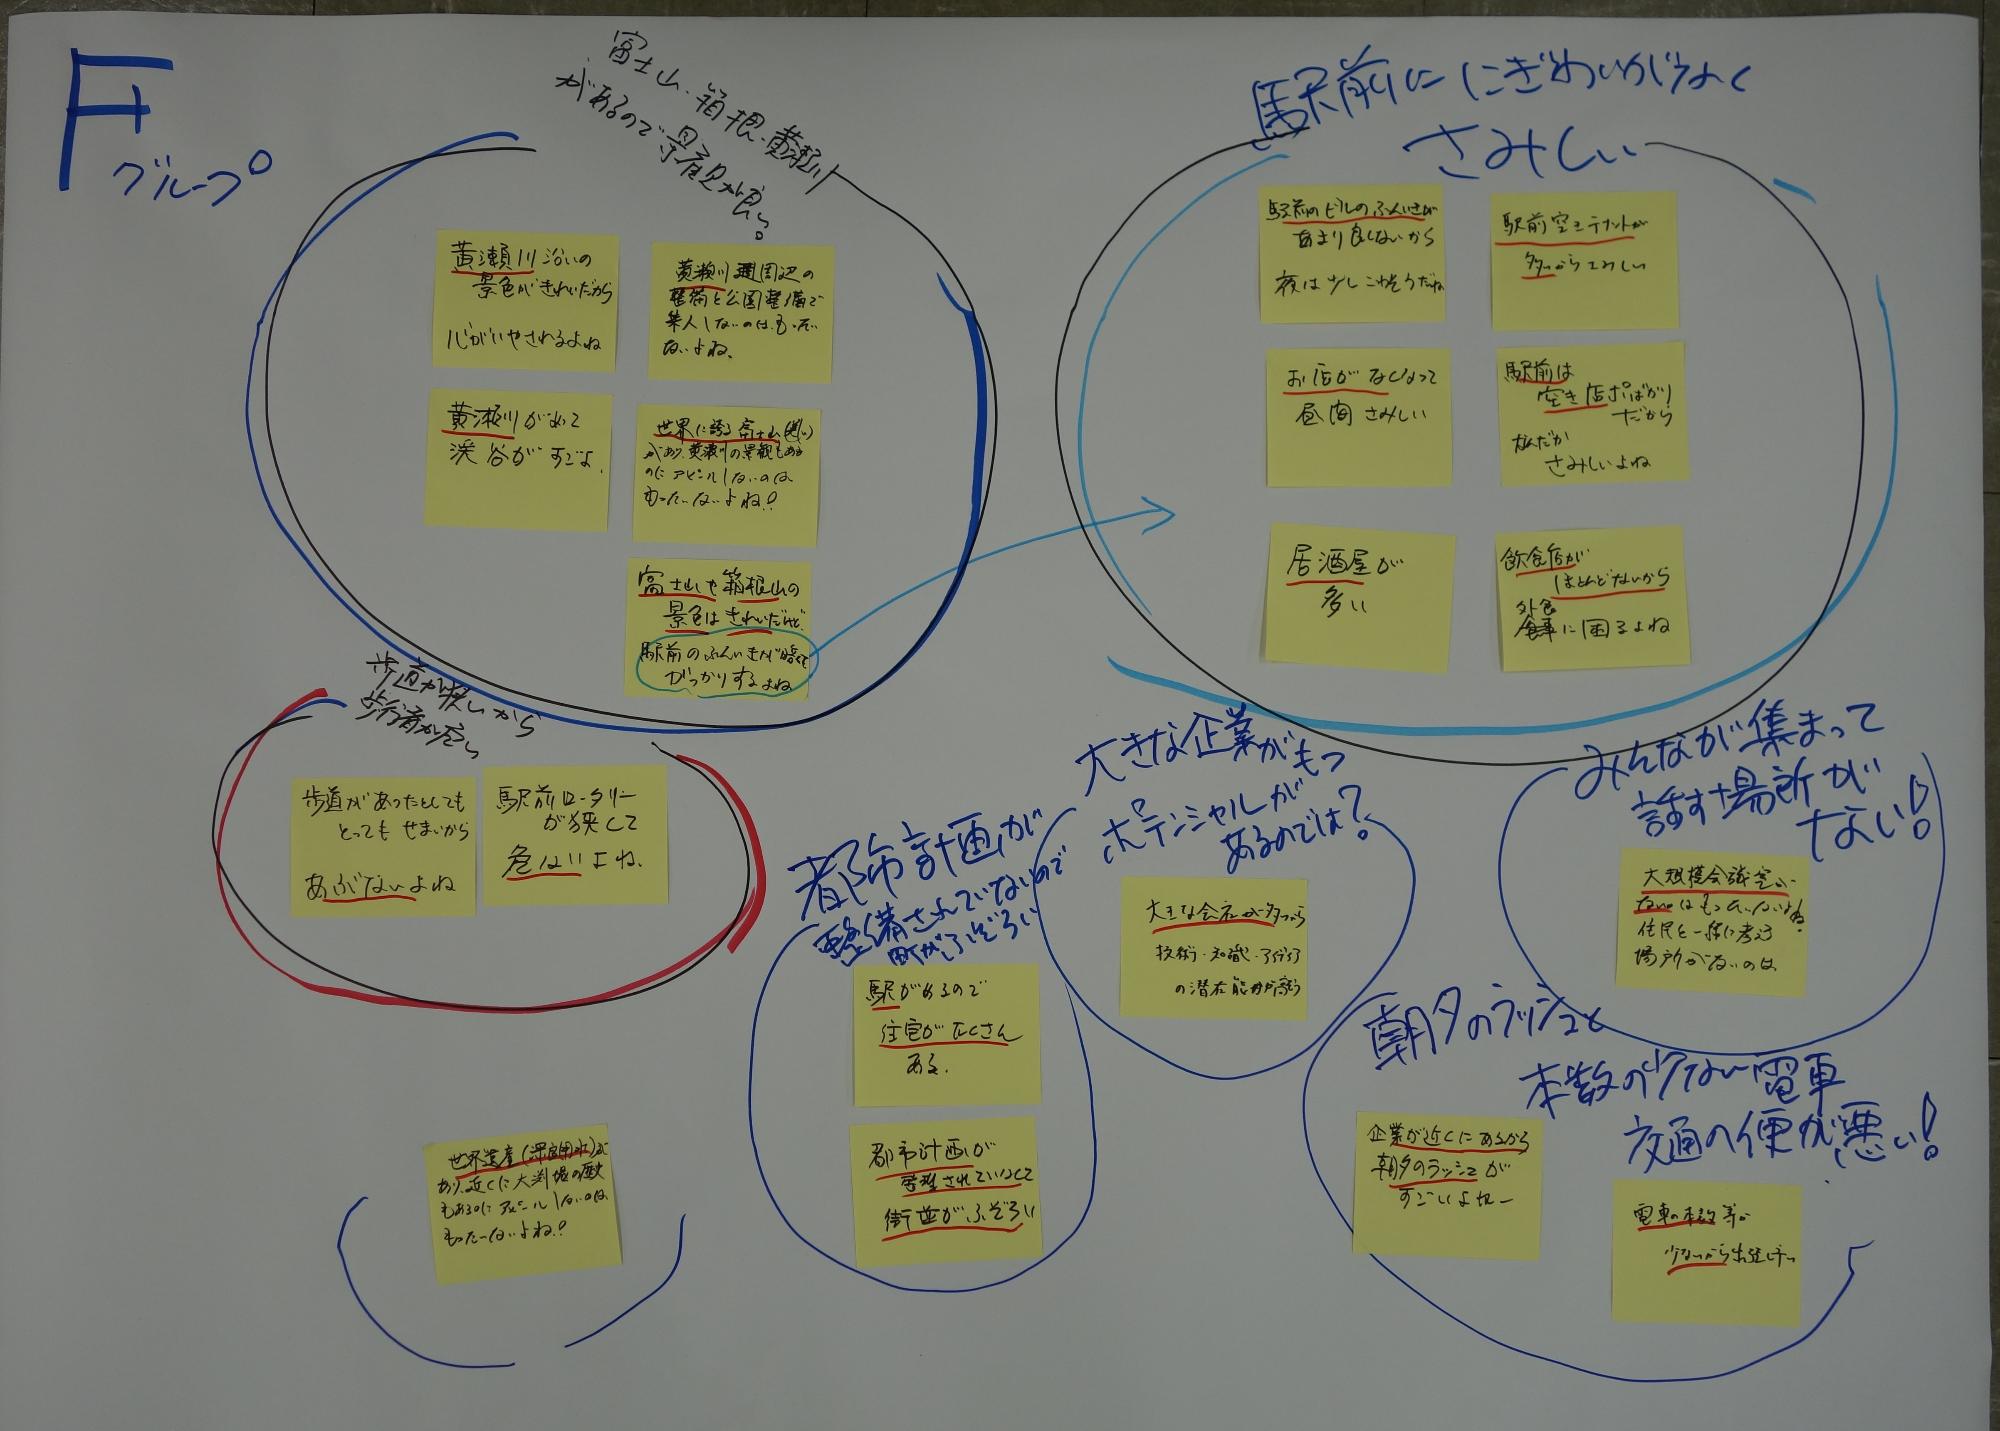 F
グループ
富士山・箱根・黄瀬川
があるので景色が良い。
黄瀬川沿いの
景色がきれいだから
心がいやされるよね
黄瀬川周辺の
整備と公園整備で
集人しないのは、もったい
ないよね。
黄瀬川があって
渓谷がすごい。
世界に誇る富士山
があり、黄瀬川の景観もある
のにアピールしないのは
もったいないよね!
富士山や箱根山の
景色はきれいだけど、
駅前のふんいきが暗くて
がっかりするよね
駅前ににぎわいがなく
さみしい
駅前のビルのふんいきが
あまり良くないから
夜は少しこわそうだね
駅前空きテナントが
多いからさみしい
お店がなくなって
昼間さみしい
駅前は
空き店ポばかり
だから
なんだか
さみしいよね
居酒屋が
多い
飲食店が
ほとんどないから
外食
食事に困るよね
歩道が狭いから
歩行者が危い
歩道があったとしても
とってもせまいから
あぶないよね
駅前ロータリー
が狭くて
危いよね、
都市計画が
整備されていないので
町がふぞろい
駅があるので
住宅がたくさん
ある。
都市計画が
管理されていなくて
街並がふぞろい
大きな企業がもつ
ポテンシャルが
あるのでは?
大きな会社が多いから
技術・知識・アイディア
の潜在能力が高い
みんなが集まって
話す場所が
ない!
大規模会議室が
ないのはもったいないよね。
住民と一緒に考える
場所がないのは
朝夕のラッシュと
本数の少ない電車
交通の便が悪い!
企業が近くにあるから
朝夕のラッシュが
すごいよねー
電車の本数等が
少ないから
世界遺産(深良用水)が
あり、近くに大渕堰の歴史
もあるのにアピールしないのは
もったーないよね!